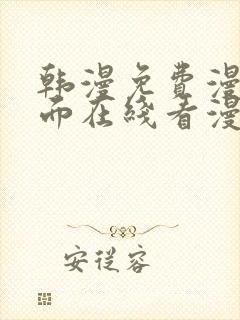 韩漫免费漫
而在线看漫
安从容